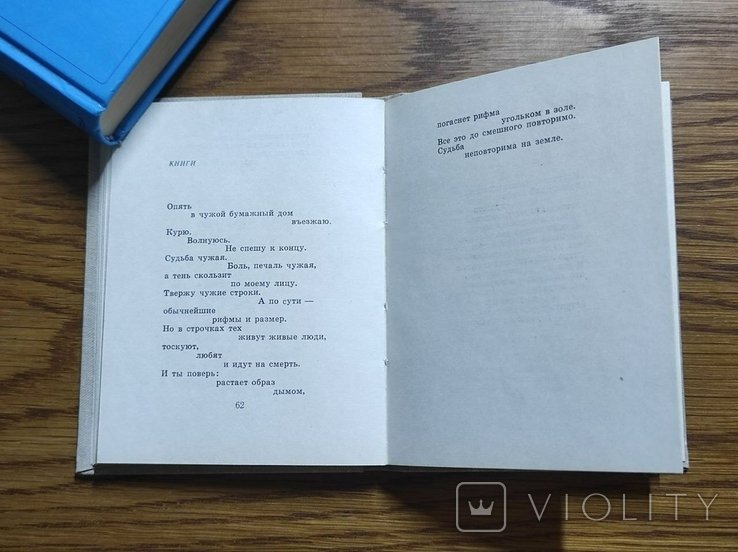 КНИГИ
Опять
в чужой бумажный дом
въезжаю.
Курю.
Волнуюсь.
Не спешу к концу.
Судьба чужая.
Боль, печаль чужая,
а тень скользит
по моему лицу.
Твержу чужие строки.
А по сути —
обычнейшие
рифмы и размер.
Но в строчках тех
живут живые люди,
тоскуют,
любят
и идут на смерть.
И ты поверь:
растает образ
дымом,
62
погаснет рифма
угольком в золе.
Все это до смешного повторимо.
Судьба
неповторима на земле.
VIOLITY